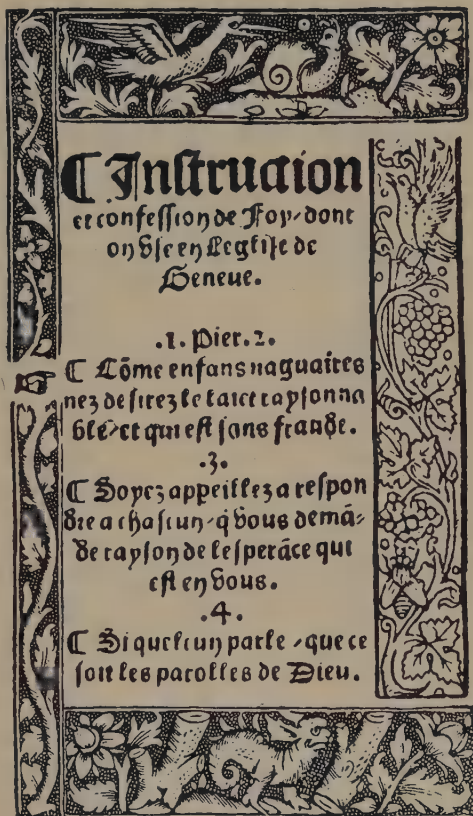 ¶ Instruction
et confession de Foy / dont
on vse en Leglise de
Geneue.
.1. Pier. 2.
¶ Cõme enfans naguaires
nez desirez le laict raysonna
ble / et qui est sans fraude.
.3.
¶ Soyez appeillez a respon
dre a chascun / q̃ vous demã=
de rayson de lesperãce qui
est en vous.
.4.
¶ Si quelcun parle / que ce
soit les parolles de Dieu.